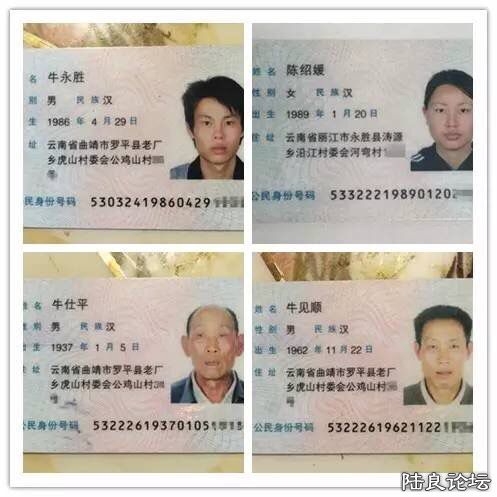 名 牛永胜
别 男 民族 汉
生 1986 年 4 月 29 日
住 址 云南省曲靖市罗平县老厂
乡虎山村委会公鸡山村
号
民身份号码 53032419860429
姓名 陈绍媛
性别 女 民族 汉
出生 1989 年 1 月 20 日
住址 云南省丽江市永胜县涛源
乡沿江村委会河弯村
公民身份号码 53322219890120
姓名 牛仕平
性别 男 民族 汉
出生 1937 年 1 月 5 日
住址 云南省曲靖市罗平县老厂
乡虎山村委会公鸡山村
公民身份号码 53222619370105
姓名 牛见顺
性别 男 民族 汉
出生 1962 年 11 月 22 日
住址 云南省曲靖市罗平县老厂
乡虎山村委会公鸡山村
号
公民身份号码 53222619621122
陆良论坛